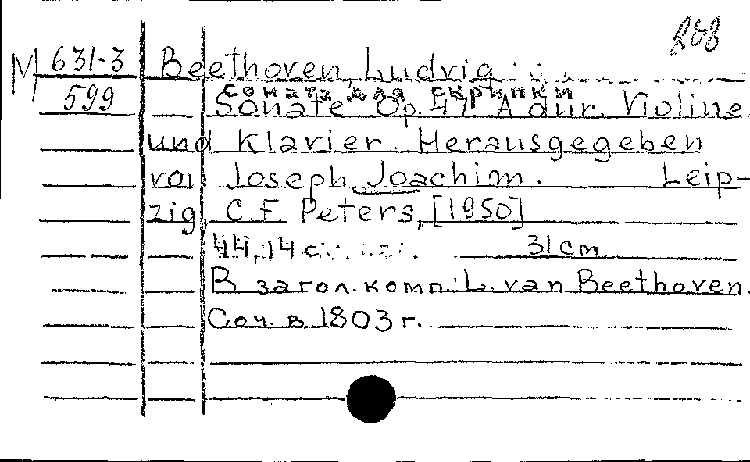 208
M 631-3 Beethoven, Ludvig
соната для скрипки
599 Sonate Op. 47 A dur. Violine
und Klavier. Herausgegeben
von Joseph Joachim. Leip-
zig, C. F. Peters, [1950]
44, 14 с. 31 cm
В загол. комп.: L. van Beethoven.
Соч. в 1803 г.